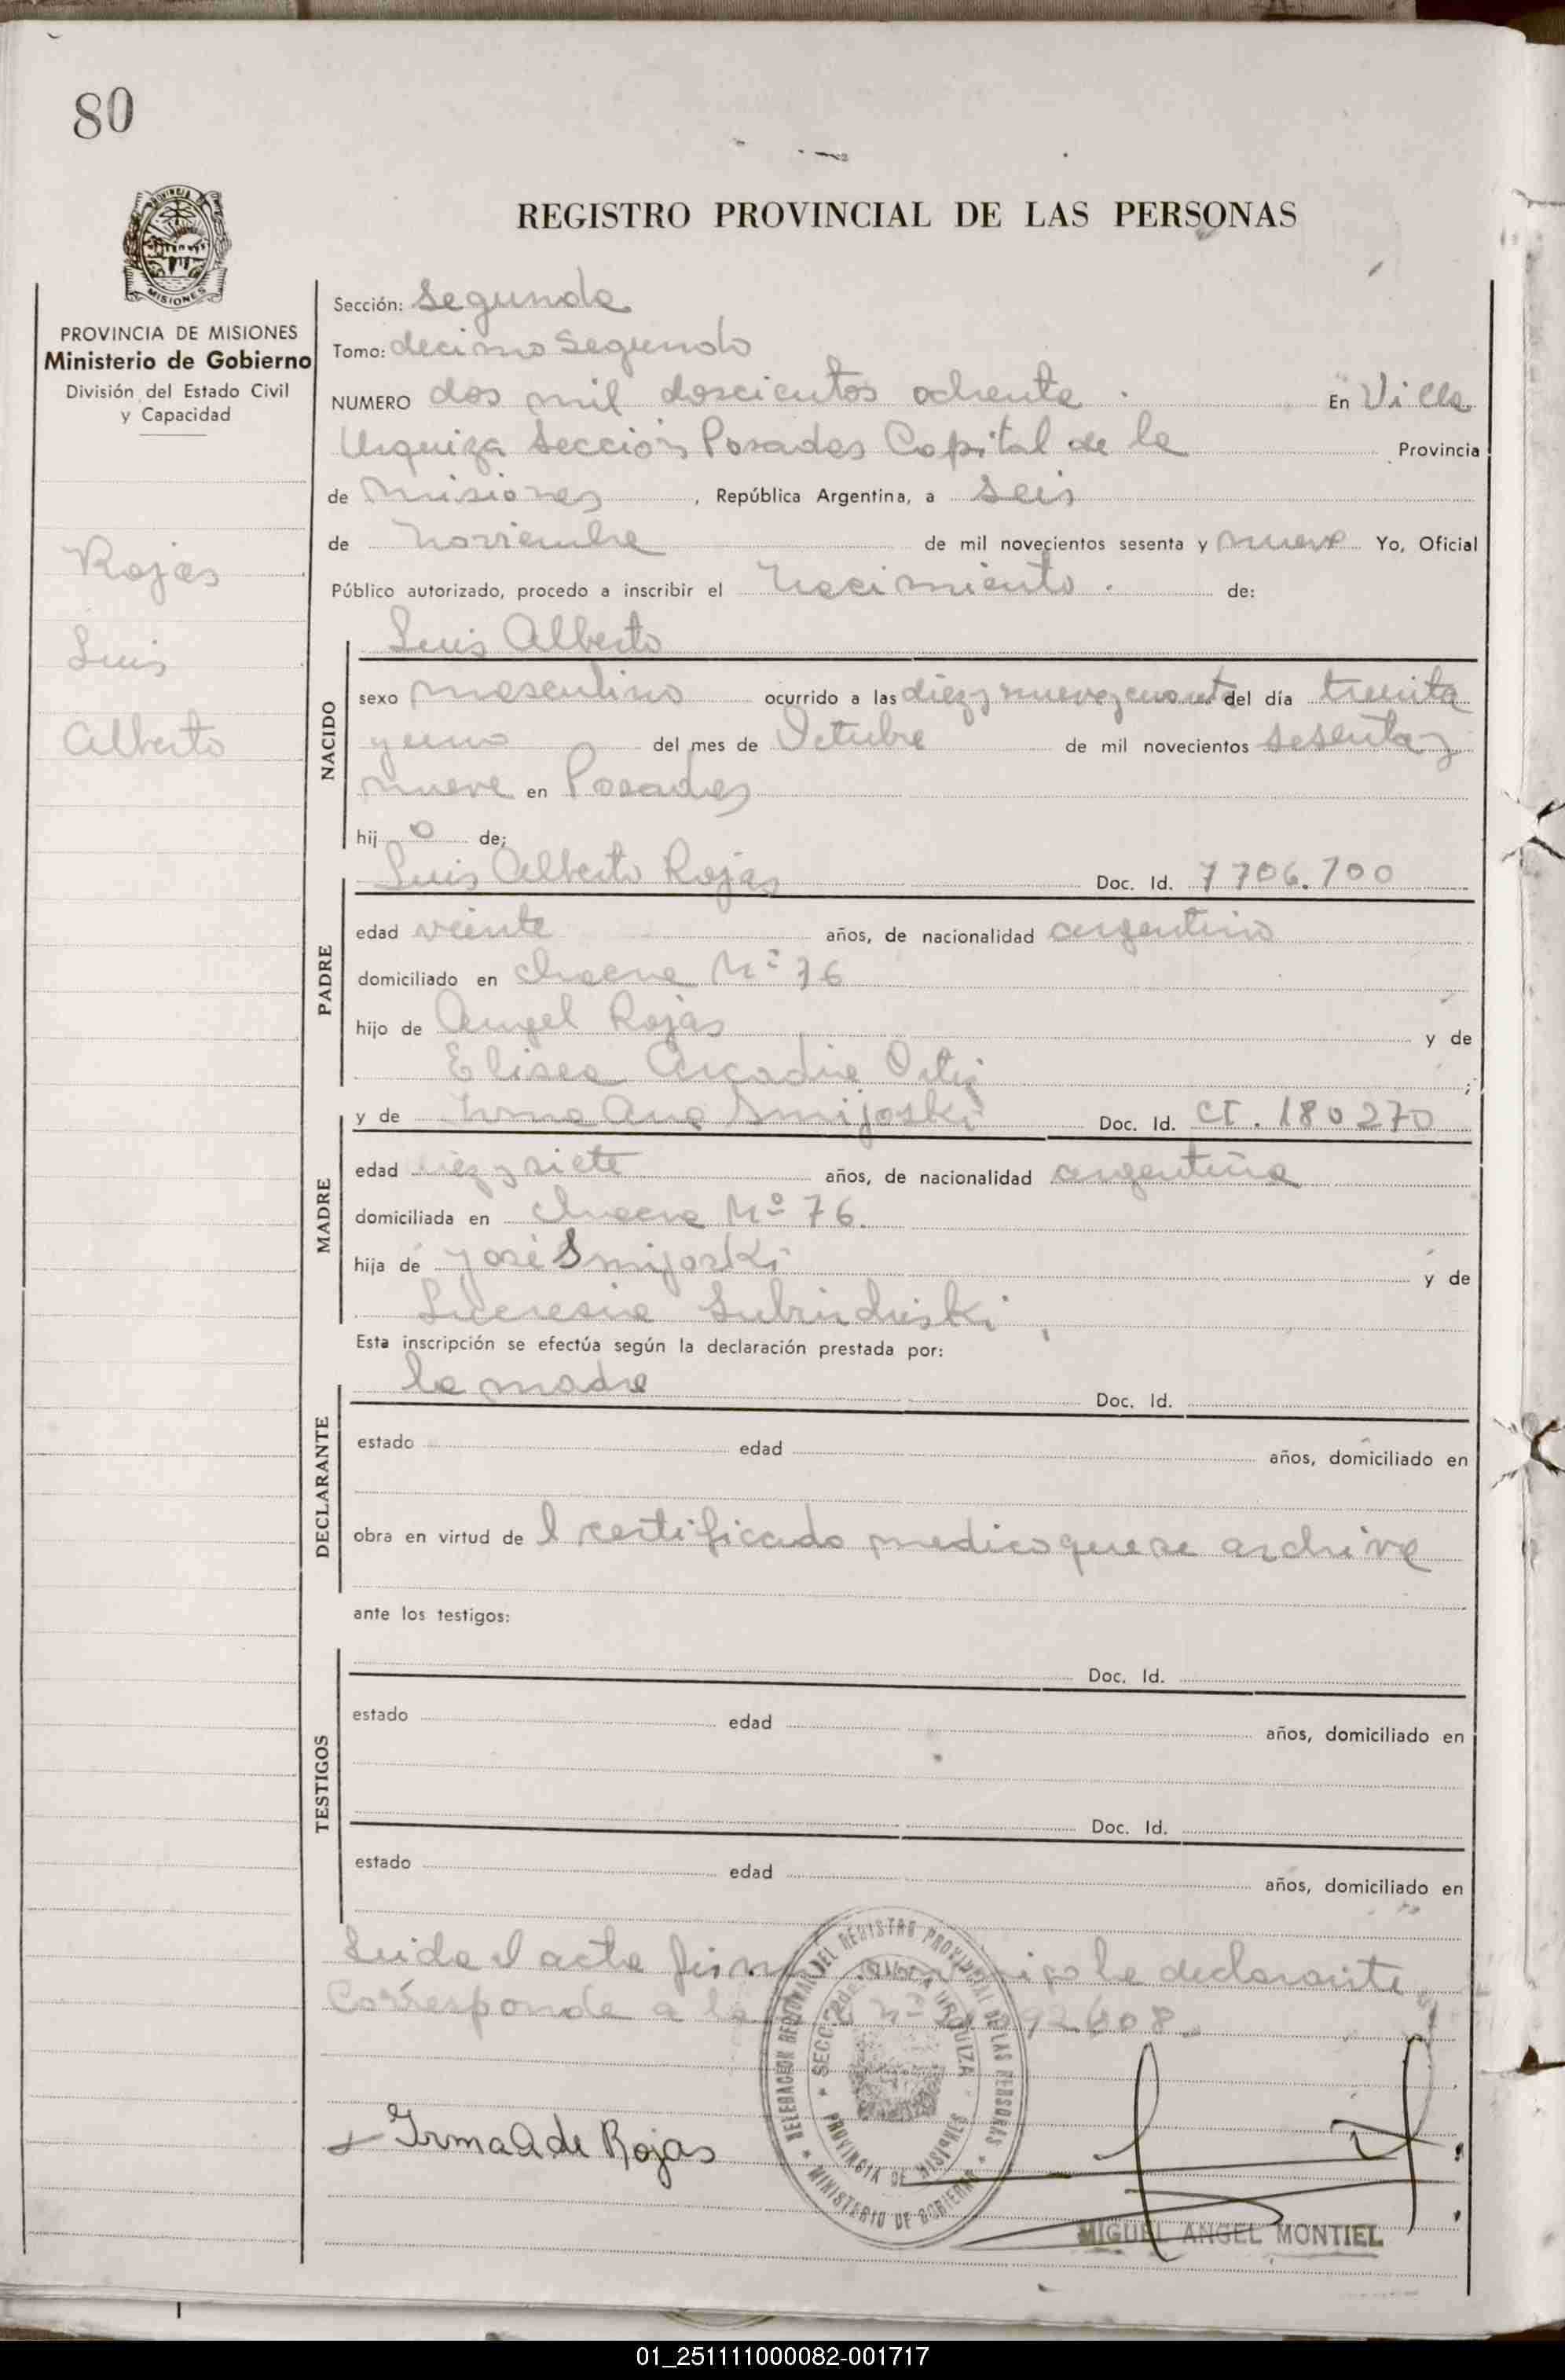 80
REGISTRO PROVINCIAL DE LAS PERSONAS
MISIONES
PROVINCIA DE MISIONES
Ministerio de Gobierno
División del Estado Civil
y Capacidad
Rojas
Luis
Alberto
Sección: Segunda
Tomo: decimo Segundo
NUMERO dos mil doscientos ochenta . En Villa
Urquiza Sección Posadas Capital de la Provincia
de Misiones , República Argentina, a seis
de Noviembre de mil novecientos sesenta y nueve Yo, Oficial
Público autorizado, procedo a inscribir el Nacimiento . de:
NACIDO
Luis Alberto
sexo masculino ocurrido a las diez y nueve y del día treinta
y uno del mes de Octubre de mil novecientos sesenta y
nueve en Posadas
hij o de;
PADRE
Luis Alberto Rojas Doc. Id. 7706.700
edad veinte años, de nacionalidad argentino
domiciliado en chacra Nº 76
hijo de Angel Rojas y de
Elisea Arcadia Ortiz ;
MADRE
y de Irma Ana Smijoski Doc. Id. CI. 180270
edad diez y siete años, de nacionalidad argentina
domiciliada en chacra Nº 76.
hija de José Smijoski y de
Lucresia
Esta inscripción se efectúa según la declaración prestada por:
DECLARANTE
la madre Doc. Id.
estado edad años, domiciliado en
obra en virtud de l certificado medico que se archiva
ante los testigos:
TESTIGOS
Doc. Id.
estado edad años, domiciliado en
Doc. Id.
estado edad años, domiciliado en
Leida el acta firma conmigo la declarante
Corresponde a la Nº 92608.
DELEGACION REGIONAL DEL REGISTRO PROVINCIAL DE LAS PERSONAS
SECC. 2da. VILLA URQUIZA
PROVINCIA DE MISIONES
MINISTERIO DE GOBIERNO
Irma A. de Rojas
MIGUEL ANGEL MONTIEL
01_251111000082-001717